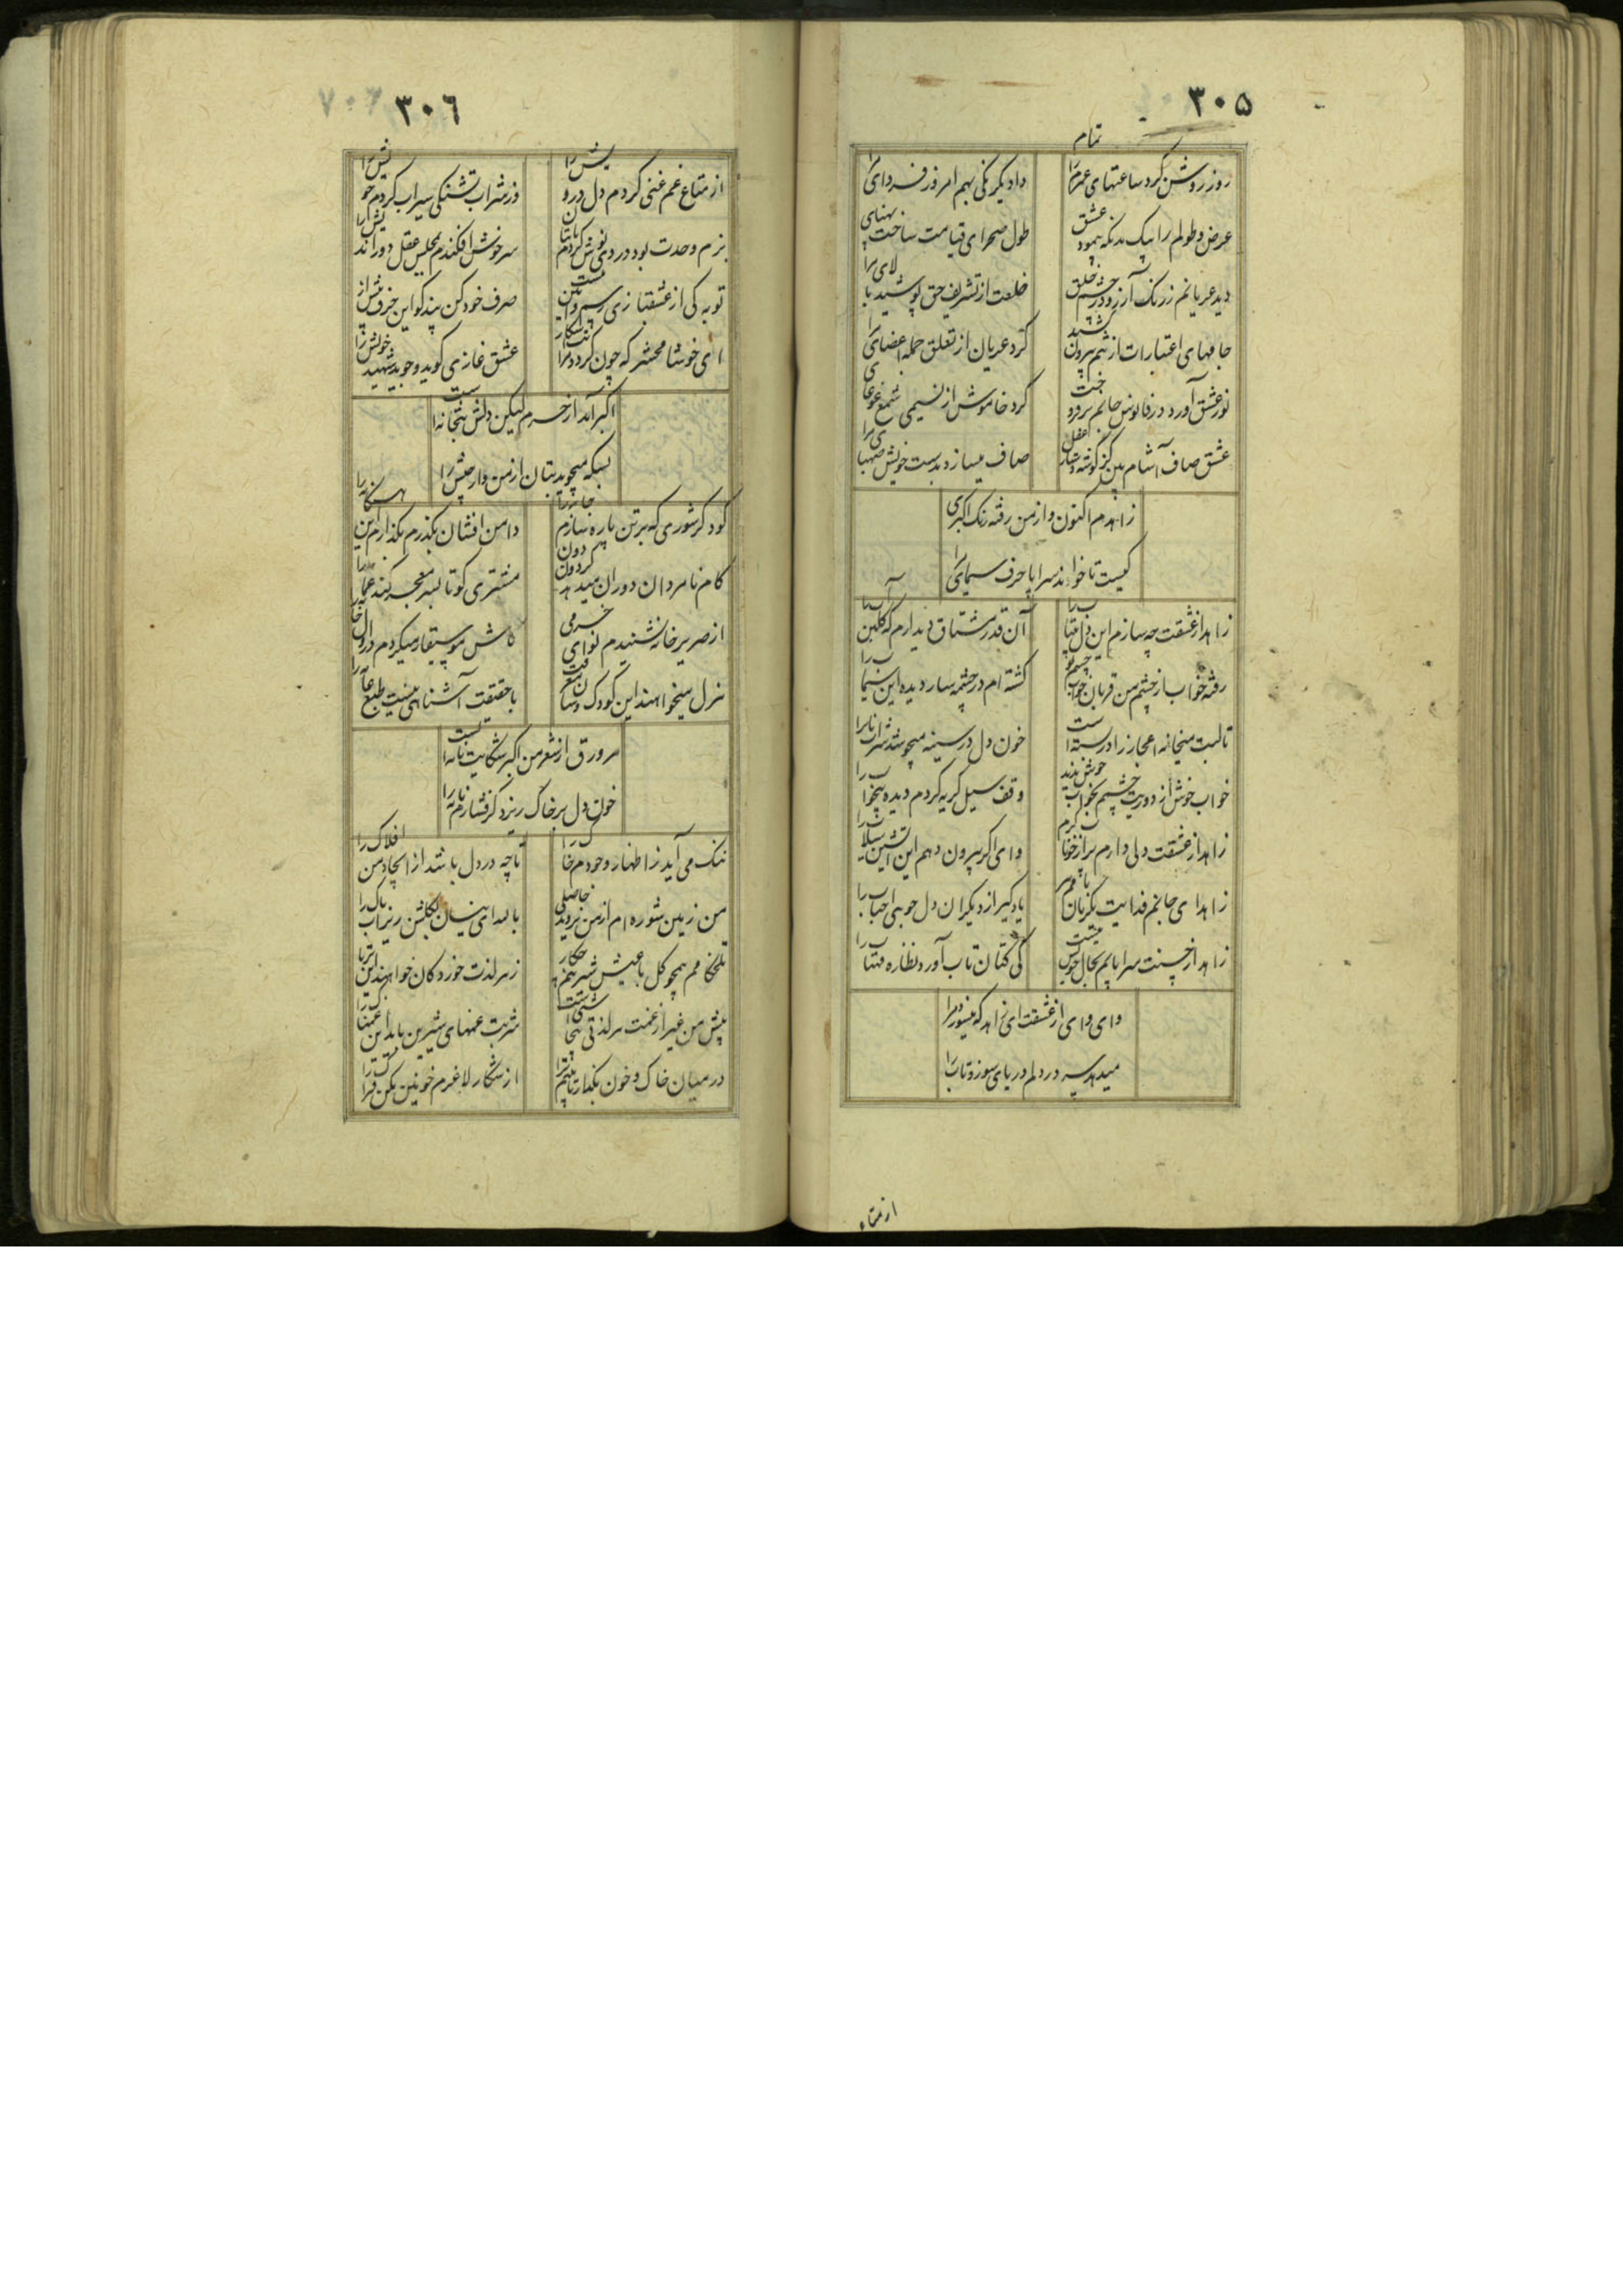 ۳۰۵
تمام
روز روشن کرد ساعتهای عمر مرا
داد یکرنگی بهم امروز فردای مرا
عرض و طولم را بیک مدنگه پیمود عشق
طول صحرای قیامت ساخت پهنای مرا
دید عریانم ز رنگ آرزو در چشم خلق
خلعت از تشریف حق پوشید بالای مرا
جامهای اعتبارات از تنم بیرون کشید
کرد عریان از تعلق جمله اعضای مرا
نور عشق آورد در فانوس جانم برفروخت
کرد خاموش از نسیمی شمع غوغای مرا
عشق صاف آشام بین کز گوشه دستار عقل
صاف میسازد بدست خویش صهبای مرا
زاهدم اکنون و از من رفته رنگ اکبری
کیست تا خواند سراپا حرف سیمای مرا
زاهد از عشقت چه سازم این دل بیتاب را
آن قدر مشتاق دیدارم که کلبن آب را
رفته خواب از چشم من قربان خواب چشم تو
کشته ام در چشمه سار دیده این سیماب را
تا لبت میخانه اعجاز را در بسته است
خون دل در سینه میجوشد شراب ناب را
خواب خوش از دوریت چشمم بخواب خوش ندید
وقف سیل گریه کردم دیده بیخواب را
زاهد از عشقت دلی دارم پر از خوناب گرم
وای اگر بیرون دهم این آتشین سیلاب را
زاهد ای جانم فدایت
یاد گیر از دیگران دل جویی احباب را
زاهد از حسنت سراپایم بحال خویش نیست
کی کتان تاب آورد نظاره مهتاب را
وای وای از عشقت ای زاهد که میسوزد مرا
میدهد سر در دلم دریای سوز و تاب را
از متاع
۳۰۶
از متاع غم غنی کردم دل درویش را
وز شراب تشنگی سیراب کردم خویش را
بزم وحدت بود دردی نوش کردم تا بآن
سرخوش افکندم بمجلس عقل دور اندیش را
توبه کی از عشقبازی
صرف خود کن پندگو این حرف بیش از بیش را
ای خوشا محشر که چون گردد مرا
عشق غازی گوید و جوید شهید خویش را
اکبر آمد از حرم لیکن دلش بتخانه است
بسکه میجوید بتان از من دار خویش را
کو دگر شوری که برتن پاره سازم جامه را
دامن افشان بگذرم بگذارم این هنگامه را
کام نامردان دوران میدهد گردون دون
مشتری کو تا بسر معجر کند عمامه را
از صریر خامه نشنیدم نوای خرمی
کاش موسیقار میکردم در اول خامه را
هزل میخواهند این کودک وشان
با حقیقت آشنائی نیست طبع عامه را
هر ورق از شعر من اکبر شکایت نامه ایست
خون دل بر خاک ریزد گر فشارم نامه را
ننگ می آید ز اظهار وجودم خاک را
تا چه در دل باشد از ایجاد من افلاک را
من زمین شوره ام از من نروید حاصلی
باله ای نیسان بگلشن ریز آب پاک را
تلخکامم همچو گل با عیش شیرینم چکار
زهر لذت خوردگان خواهند این تریاک را
پیش من غیر از غمت هر لذتی بیجاشنیست
شربت غمهای شیرین باید این غمناک را
در میان خاک و خون بگذار تا بینم ترا
از شکار لاغرم خونین مکن فتراک را